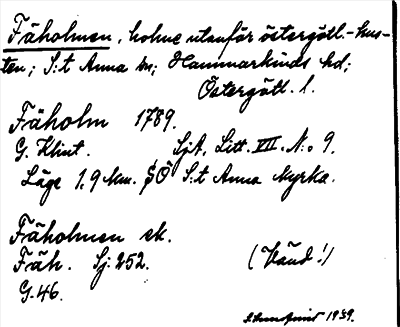 Fäholmen, holme utanför östergötl.-kus-
ten; S:t Anna sn; Hammarkinds hd;
Östergötl. l.
Fäholm 1789.
G. Klint. SjA, Litt. VII. N:o 9.
Läge 1,9 km. SÖ S:t Anna Kyrka.
Fäholmen ek.
Fäh. Sj: 252.
(Vänd!)
G. 46.
1939.